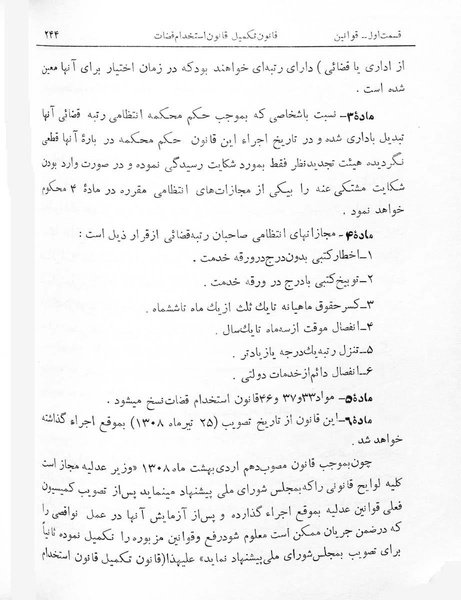 قسمت اول ـ قوانین قانون تکمیل قانون استخدام قضات ۲۴۴
از اداری یا قضائی) دارای رتبه‌ای خواهند بودکه در زمان اختیار برای آنها معین
شده است .
ماده۳ـ نسبت باشخاصی که بموجب حکم محکمه انتظامی رتبه قضائی آنها
تبدیل باداری شده و در تاریخ اجراء این قانون حکم محکمه در بارهٔ آنها قطعی
نگردیده هیئت تجدیدنظر فقط بمورد شکایت رسیدگی نموده و در صورت وارد بودن
شکایت مشتکی عنه را بیکی از مجازات‌های انتظامی مقرره در مادهٔ ۴ محکوم
خواهد نمود .
ماده۴ـ مجازاتهای انتظامی صاحبان رتبه قضائی از قرار ذیل است :
۱ـ اخطار کتبی بدون درج در ورقه خدمت .
۲ـ توبیخ کتبی با درج در ورقه خدمت .
۳ـ کسر حقوق ماهیانه تا یک ثلث از یک ماه تا ششماه .
۴ـ انفصال موقت از سه ماه تا یک سال .
۵ـ تنزل رتبه یک درجه یا زیادتر .
۶ـ انفصال دائم از خدمات دولتی .
ماده۵ـ مواد ۳۳ و ۳۷ و ۴۶ قانون استخدام قضات نسخ میشود .
ماده۶ـ این قانون از تاریخ تصویب (۲۵ تیر ماه ۱۳۰۸) بموقع اجراء گذاشته
خواهد شد .
چون بموجب قانون مصوب دهم اردی بهشت ماه ۱۳۰۸ «وزیر عدلیه مجاز است
کلیه لوایح قانونی را که بمجلس شورای ملی پیشنهاد مینماید پس از تصویب کمیسیون
فعلی قوانین عدلیه بموقع اجراء گذارده و پس از آزمایش آنها در عمل نواقصی را
که در ضمن جریان ممکن است معلوم شود رفع و قوانین مزبوره را تکمیل نموده ثانیاً
برای تصویب بمجلس شورای ملی پیشنهاد نماید» علیهذا (قانون تکمیل قانون استخدام